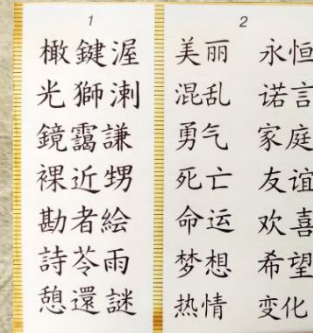 1
橄鍵渥
光獅溂
鏡靄謙
裸近甥
勘者絵
詩苓雨
憩還謎
2
美丽 永恒
混乱 诺言
勇气 家庭
死亡 友谊
命运 欢喜
梦想 希望
热情 变化